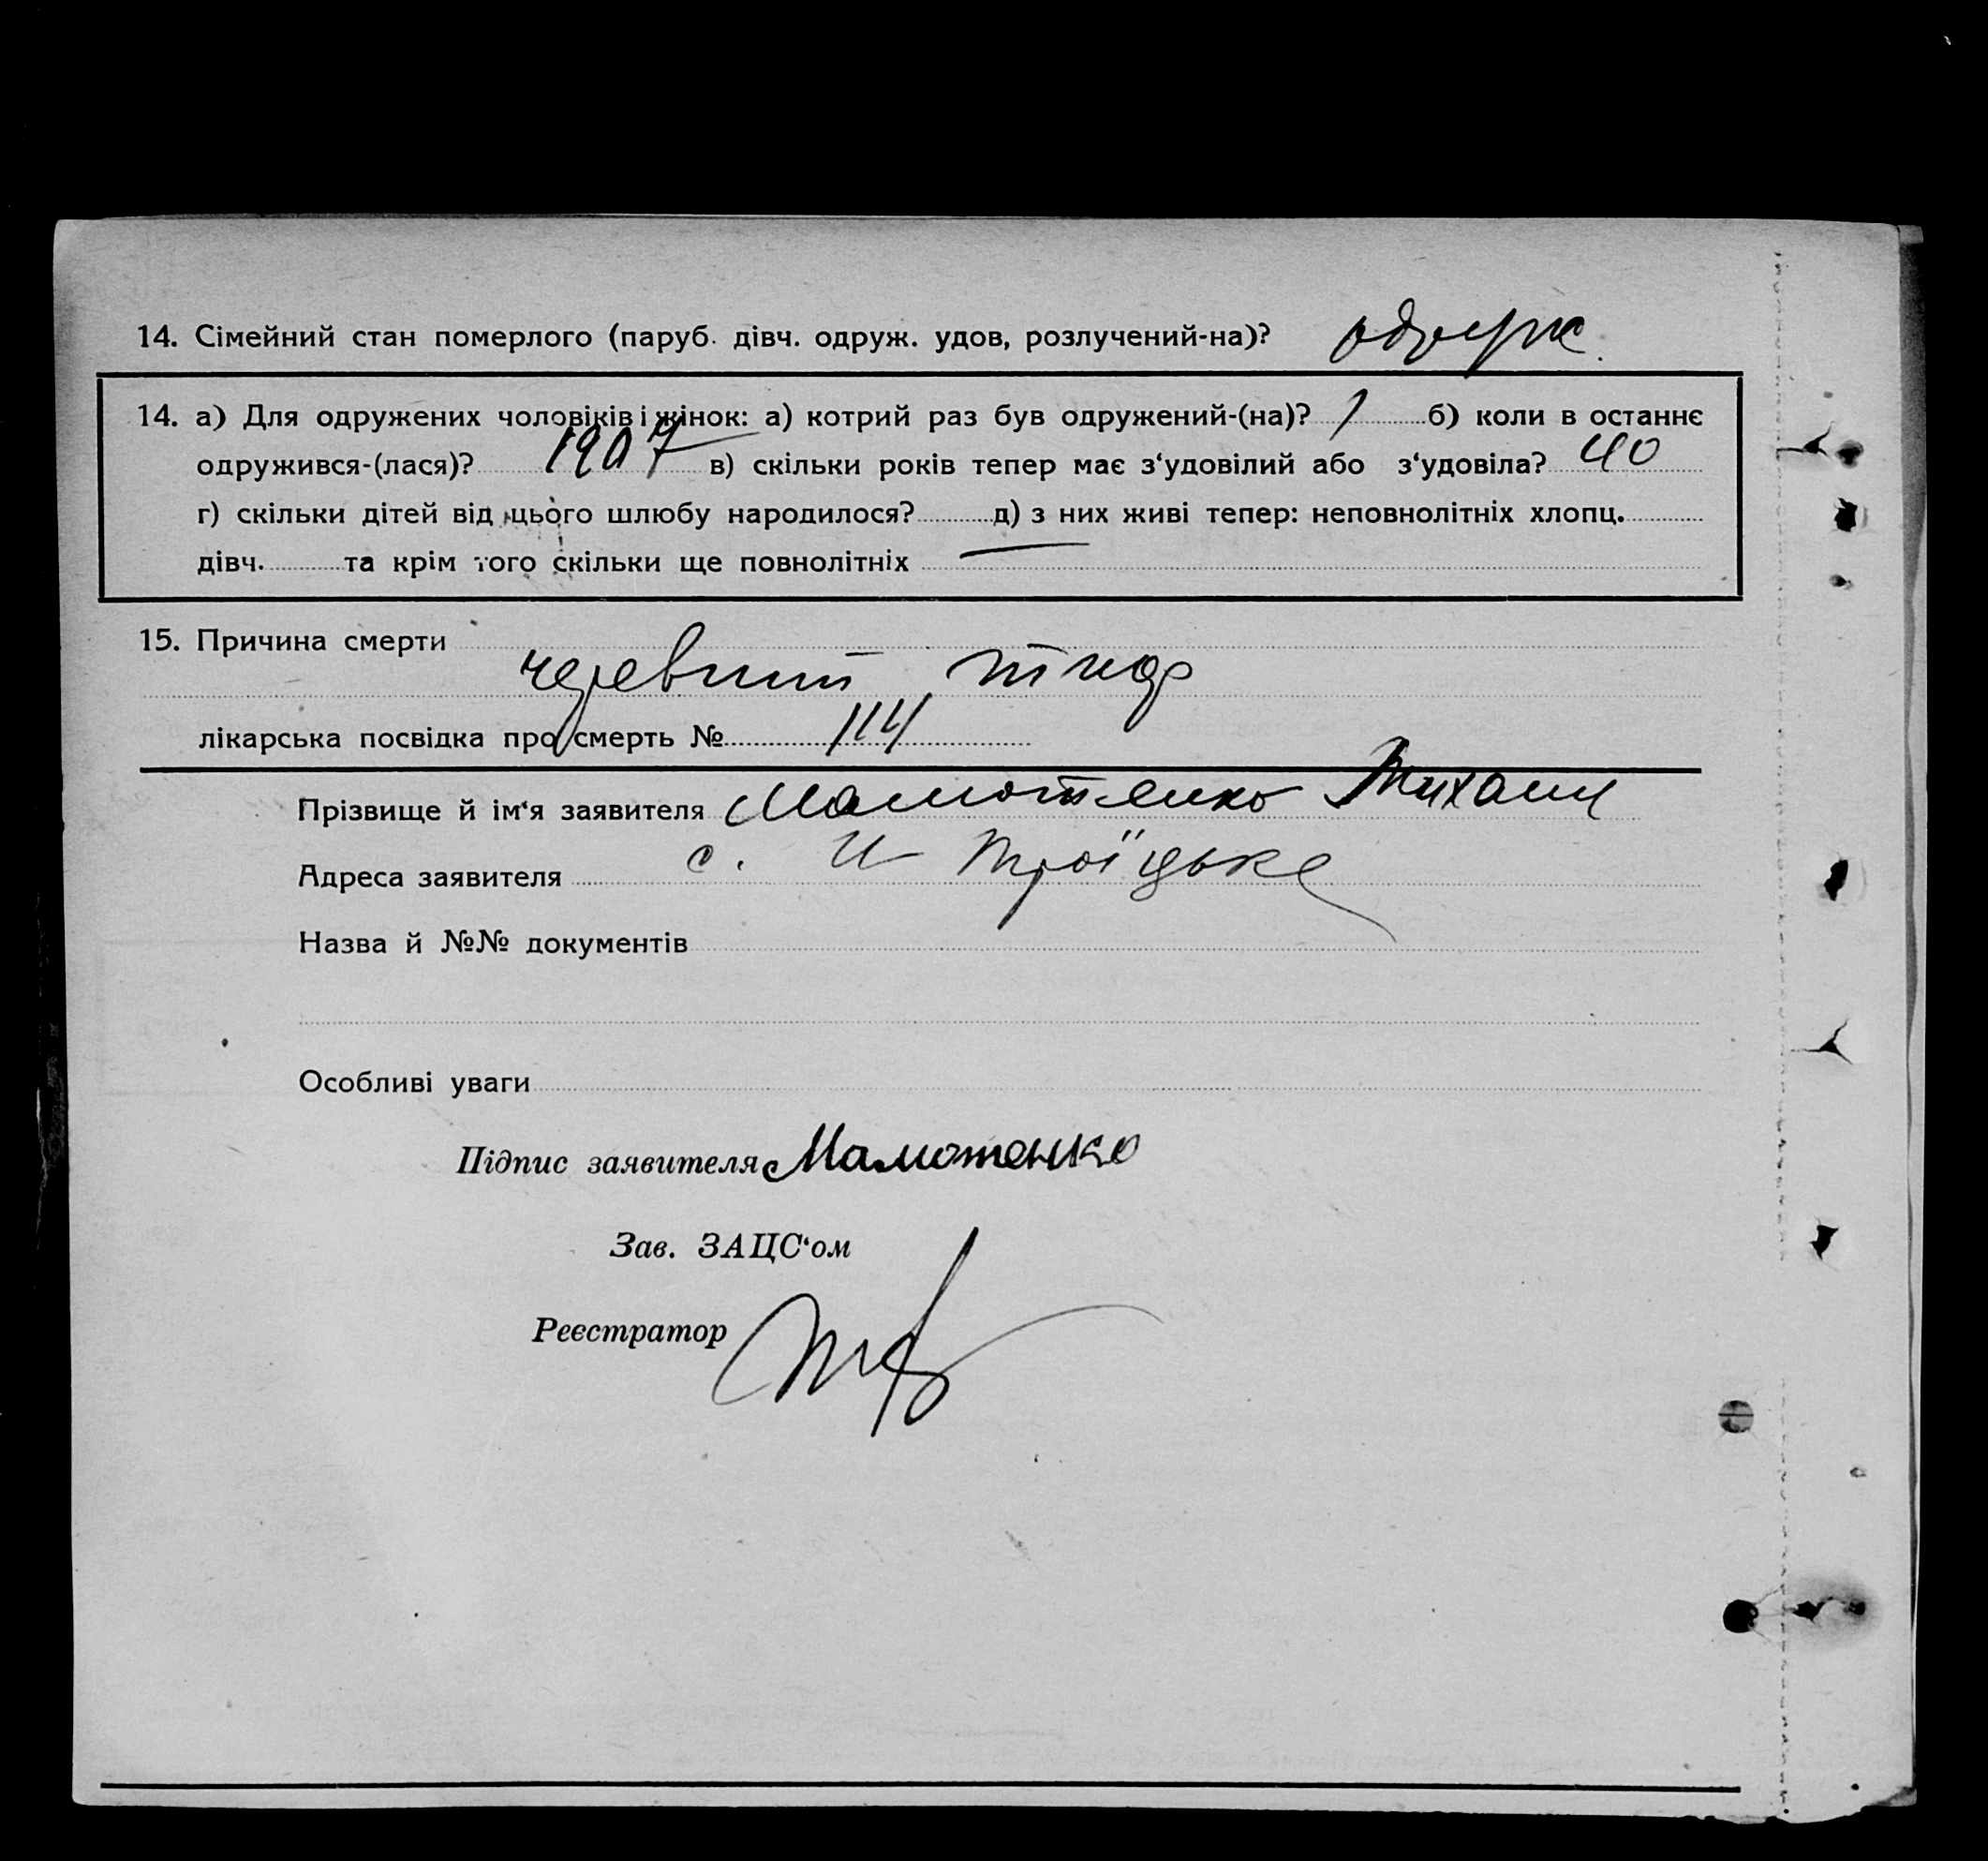 14. Сімейний стан померлого (паруб. дівч. одруж. удов, розлучений-на)? одруж.
14. а) Для одружених чоловіків і жінок: а) котрий раз був одружений-(на)? 1 б) коли в останнє
одружився-(лася)? 1907 в) скільки років тепер має з‘удовілий або з‘удовіла? 40
г) скільки дітей від цього шлюбу народилося? д) з них живі тепер: неповнолітніх хлопц.
дівч. та крім того скільки ще повнолітніх —
15. Причина смерти
черевний тиф
лікарська посвідка про смерть № 114
Прізвище й ім‘я заявителя Мамотенко Михаил
Адреса заявителя с. Н Троїцьке
Назва й №№ документів
Особливі уваги
Підпис заявителя Мамотенко
Зав. ЗАЦС‘ом
Реєстратор